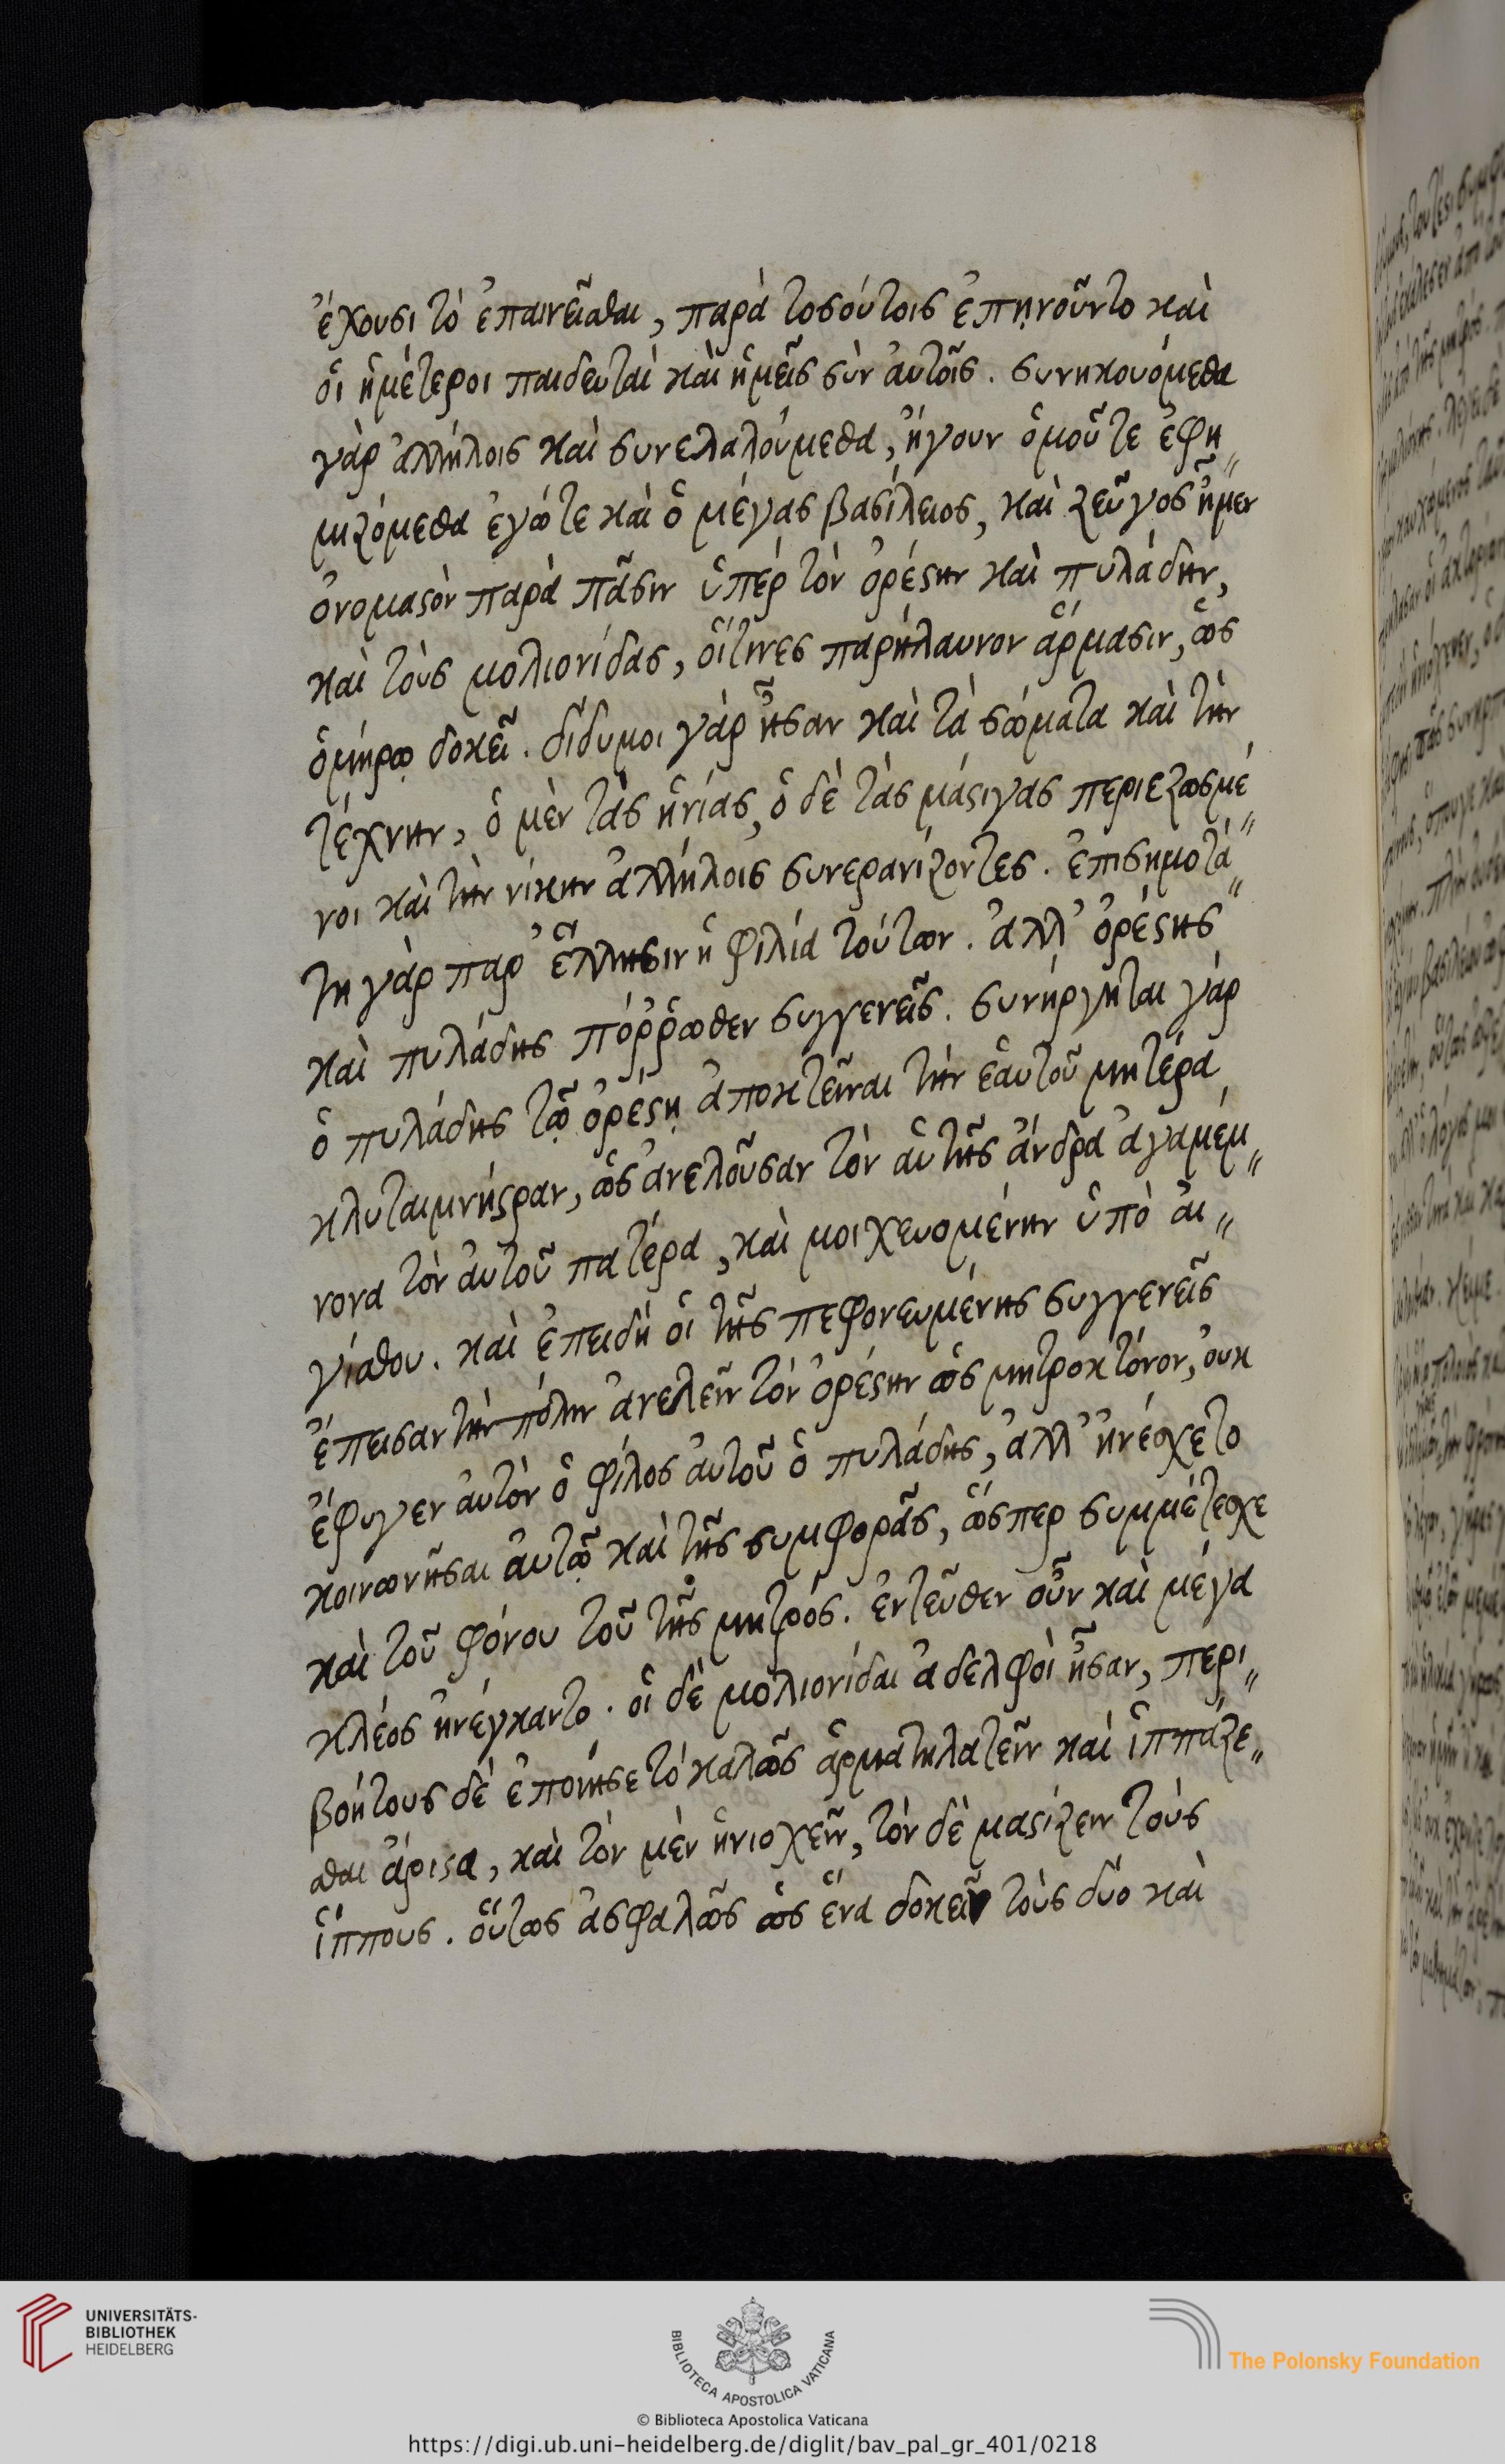 ἔχουσι τὸ ἐπαινεῖσθαι, παρὰ τοσούτοις ἐπῃνοῦντο καὶ
οἱ ἡμέτεροι παιδευταὶ καὶ ἡμεῖς σὺν αὐτοῖς. συνηκουόμεθα
γὰρ ἀλλήλοις καὶ συνελαλούμεθα, ἤγουν ὁμοῦ τε ἐφη„
μιζόμεθα ἐγώ τε καὶ ὁ μέγας βασίλειος, καὶ ζεῦγος ἦμεν
ὀνομαστὸν παρὰ πᾶσιν ὑπὲρ τὸν ὀρέστην καὶ πυλάδην,
καὶ τοὺς μολιονίδας, οἵτινες παρήλαυνον ἅρμασιν, ὡς
ὁμήρῳ δοκεῖ. δίδυμοι γὰρ ἦσαν καὶ τὰ σώματα καὶ τὴν
τέχνην, ὁ μὲν τὰς ἡνίας, ὁ δὲ τὰς μάστιγας περιεζωσμέ„
νοι καὶ τὴν νίκην ἀλλήλοις συνερανίζοντες. ἐπισημοτά„
τη γὰρ παρ' ἕλλησιν ἡ φιλία τούτων. ἀλλ' ὀρέστης
καὶ πυλάδης πόῤῥωθεν συγγενεῖς. συνήργηται γὰρ
ὁ πυλάδης τῷ ὀρέστῃ ἀποκτεῖναι τὴν ἑαυτοῦ μητέρα
κλυταιμνήστραν, ὡς ἀνελοῦσαν τὸν αὑτῆς ἄνδρα ἀγαμέμ„
νονα τὸν αὐτοῦ πατέρα, καὶ μοιχευομένην ὑπὸ αἰ„
γίσθου. καὶ ἐπειδὴ οἱ τῆς πεφονευμένης συγγενεῖς
ἔπεισαν τὴν πόλιν ἀνελεῖν τὸν ὀρέστην ὡς μητροκτόνον, οὐκ
ἔφυγεν αὐτὸν ὁ φίλος αὐτοῦ ὁ πυλάδης, ἀλλ' ἠνέσχετο
κοινωνῆσαι αὐτῷ καὶ τῆς συμφορᾶς, ὥσπερ συμμέτεσχε
καὶ τοῦ φόνου τοῦ τῆς μητρός. ἐντεῦθεν οὖν καὶ μέγα
κλέος ἠνέγκαντο. οἱ δὲ μολιονίδαι ἀδελφοὶ ἦσαν, περι„
βοήτους δὲ ἐποίησε τὸ καλῶς ἁρματηλατεῖν καὶ ἱππάζε„
σθαι ἄριστα, καὶ τὸν μὲν ἡνιοχεῖν, τὸν δὲ μαστίζειν τοὺς
ἵππους. οὕτως ἀσφαλῶς ὡς ἕνα δοκεῖν τοὺς δύο καὶ
UNIVERSITÄTS-
BIBLIOTHEK
HEIDELBERG
BIBLIOTECA APOSTOLICA VATICANA
The Polonsky Foundation
© Biblioteca Apostolica Vaticana
https://digi.ub.uni-heidelberg.de/diglit/bav_pal_gr_401/0218